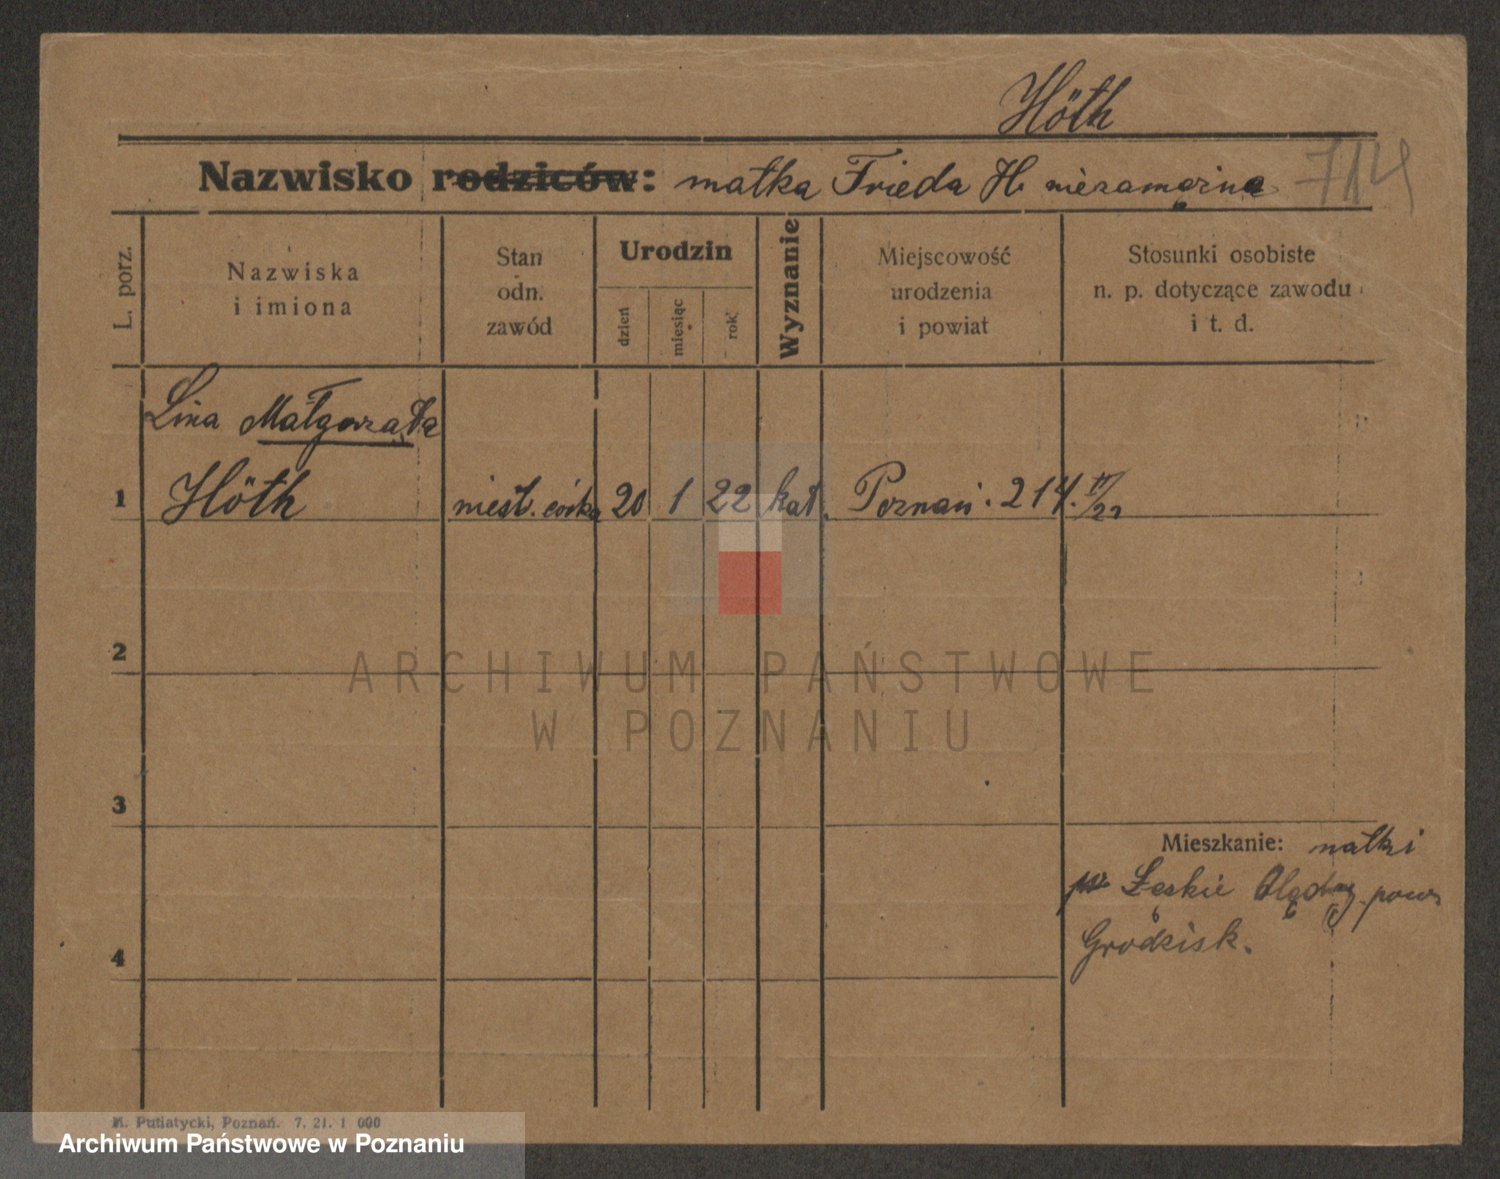 Höth
Nazwisko rodziców: matka Frieda H. niezamężna 714
L. porz.
Nazwiska
i imiona
Stan
odn.
zawód
Urodzin
dzień
miesiąc
rok
Wyznanie
Miejscowość
urodzenia
i powiat
Stosunki osobiste
n. p. dotyczące zawodu
i t. d.
Lina Małgorzata
1 Höth nieśl. córka 20 1 22 kat. Poznań. 214. II/22
2
3
4
Mieszkanie: matki
Łęskie Olędry pow.
Grodzisk.
K. Putiatycki, Poznań. 7. 21. 1 000
ARCHIWUM PAŃSTWOWE
W POZNANIU
Archiwum Państwowe w Poznaniu